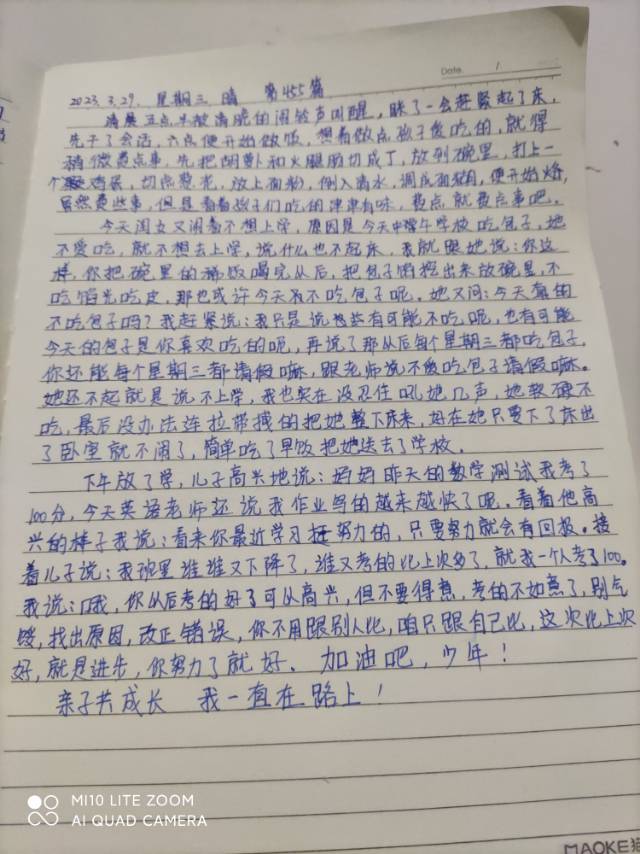 Date. /
2023.3.29. 星期三 晴 第455篇
清晨五点半被清脆的闹铃声叫醒，眯了一会赶紧起了床，
先干了会活，六点便开始做饭，想着做点孩子爱吃的，就得
稍微费点事，先把胡萝卜和火腿肠切成丁，放到碗里，打上一
个鸡蛋，切点葱花，放上面粉，倒入清水，调成面糊，便开始烙，
虽然费些事，但是看着孩子们吃的津津有味，费点就费点事吧。
今天闺女又闹着不想上学，原因是今天中午学校吃包子，她
不爱吃，就不想去上学，说什么也不起床，我就跟她说：你这
样，你把碗里的稀饭喝完从后，把包子馅挖出来放碗里，不
吃馅光吃皮，那也或许今天不吃包子呢。她又问：今天真的
不吃包子吗？我赶紧说：我只是说也许有可能不吃呢，也有可能
今天的包子是你喜欢吃的呢，再说了那从后每个星期三都吃包子，
你还能每个星期三都请假嘛，跟老师说不爱吃包子请假嘛。
她还不起就是说不上学，我也实在没忍住吼她几声，她软硬不
吃，最后没办法连拉带拽的把她整下床来，好在她只要下了床出
了卧室就不闹了，简单吃了早饭把她送去了学校。
下午放了学，儿子高兴地说：妈妈昨天的数学测试我考了
100分，今天英语老师还说我作业写的越来越快了呢。看着他高
兴的样子我说：看来你最近学习挺努力的，只要努力就会有回报。接
着儿子说：我班里谁谁又下降了，谁又考的比上次多了，就我一个人考了100。
我说：哦，你从后考的好了可从高兴，但不要得意，考的不如意了，别气
馁，找出原因，改正错误，你不用跟别人比，咱只跟自己比，这次比上次
好，就是进步，你努力了就好。加油吧，少年！
亲子共成长 我一直在路上！
MI 10 LITE ZOOM
AI QUAD CAMERA
MAOKE